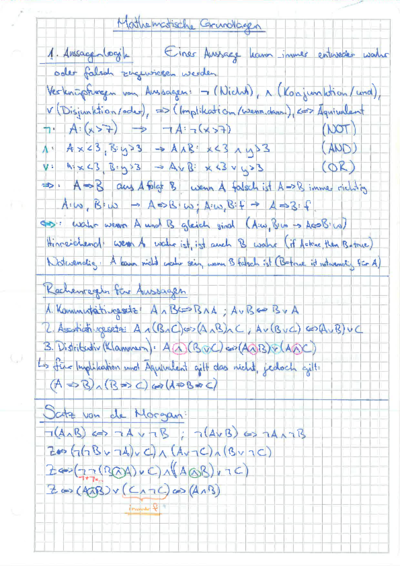 Mathematische Grundlagen
1. Aussagenlogik Einer Aussage kann immer entweder wahr
oder falsch zugewiesen werden.
Verknüpfungen von Aussagen: ¬ (Nicht), ∧ (Konjunktion/und),
∨ (Disjunktion/oder), ⇒ (Implikation/wenn,dann), ⇔ Äquivalent
¬: A:(x>7) → ¬A:¬(x>7) (NOT)
∧: A: x<3, B: y>3 → A∧B: x<3 ∧ y>3 (AND)
∨: A: x<3, B: y>3 → A∨B: x<3 ∨ y>3 (OR)
⇒: A⇒B aus A folgt B wenn A falsch ist A⇒B immer richtig
A:w, B:w → A⇒B:w; A:w, B:f → A⇒B:f
⇔: wahr wenn A und B gleich sind (A:w, B:w → A⇔B:w)
Hinreichend: wenn A wahr ist, ist auch B wahr (if A=true, then B=true)
Notwendig: A kann nicht wahr sein, wenn B falsch ist (B=true ist notwendig für A)
Rechenregeln für Aussagen
1. Kommutativgesetz: A∧B⇔B∧A ; A∨B ⇔ B∨A
2. Assoziativgesetz: A∧(B∧C)⇔(A∧B)∧C , A∨(B∨C)⇔(A∨B)∨C
3. Distributiv (Klammern): A∧(B∨C)⇔(A∧B)∨(A∧C)
↳ für Implikation und Äquivalent gilt das nicht, jedoch gilt:
(A⇒B)∧(B⇒C)⇔(A⇒B⇒C)
Satz von de Morgan:
¬(A∧B) ⇔ ¬A∨¬B ; ¬(A∨B) ⇔ ¬A∧¬B
Z⇔(¬(¬B∨¬A)∨C)∧(A∨¬C)∧(B∨¬C)
Z⇔(¬¬(B∧A)∨C)∧((A∧B)∨¬C)
Z⇔(A∧B)∨(C∧¬C)⇔(A∧B)